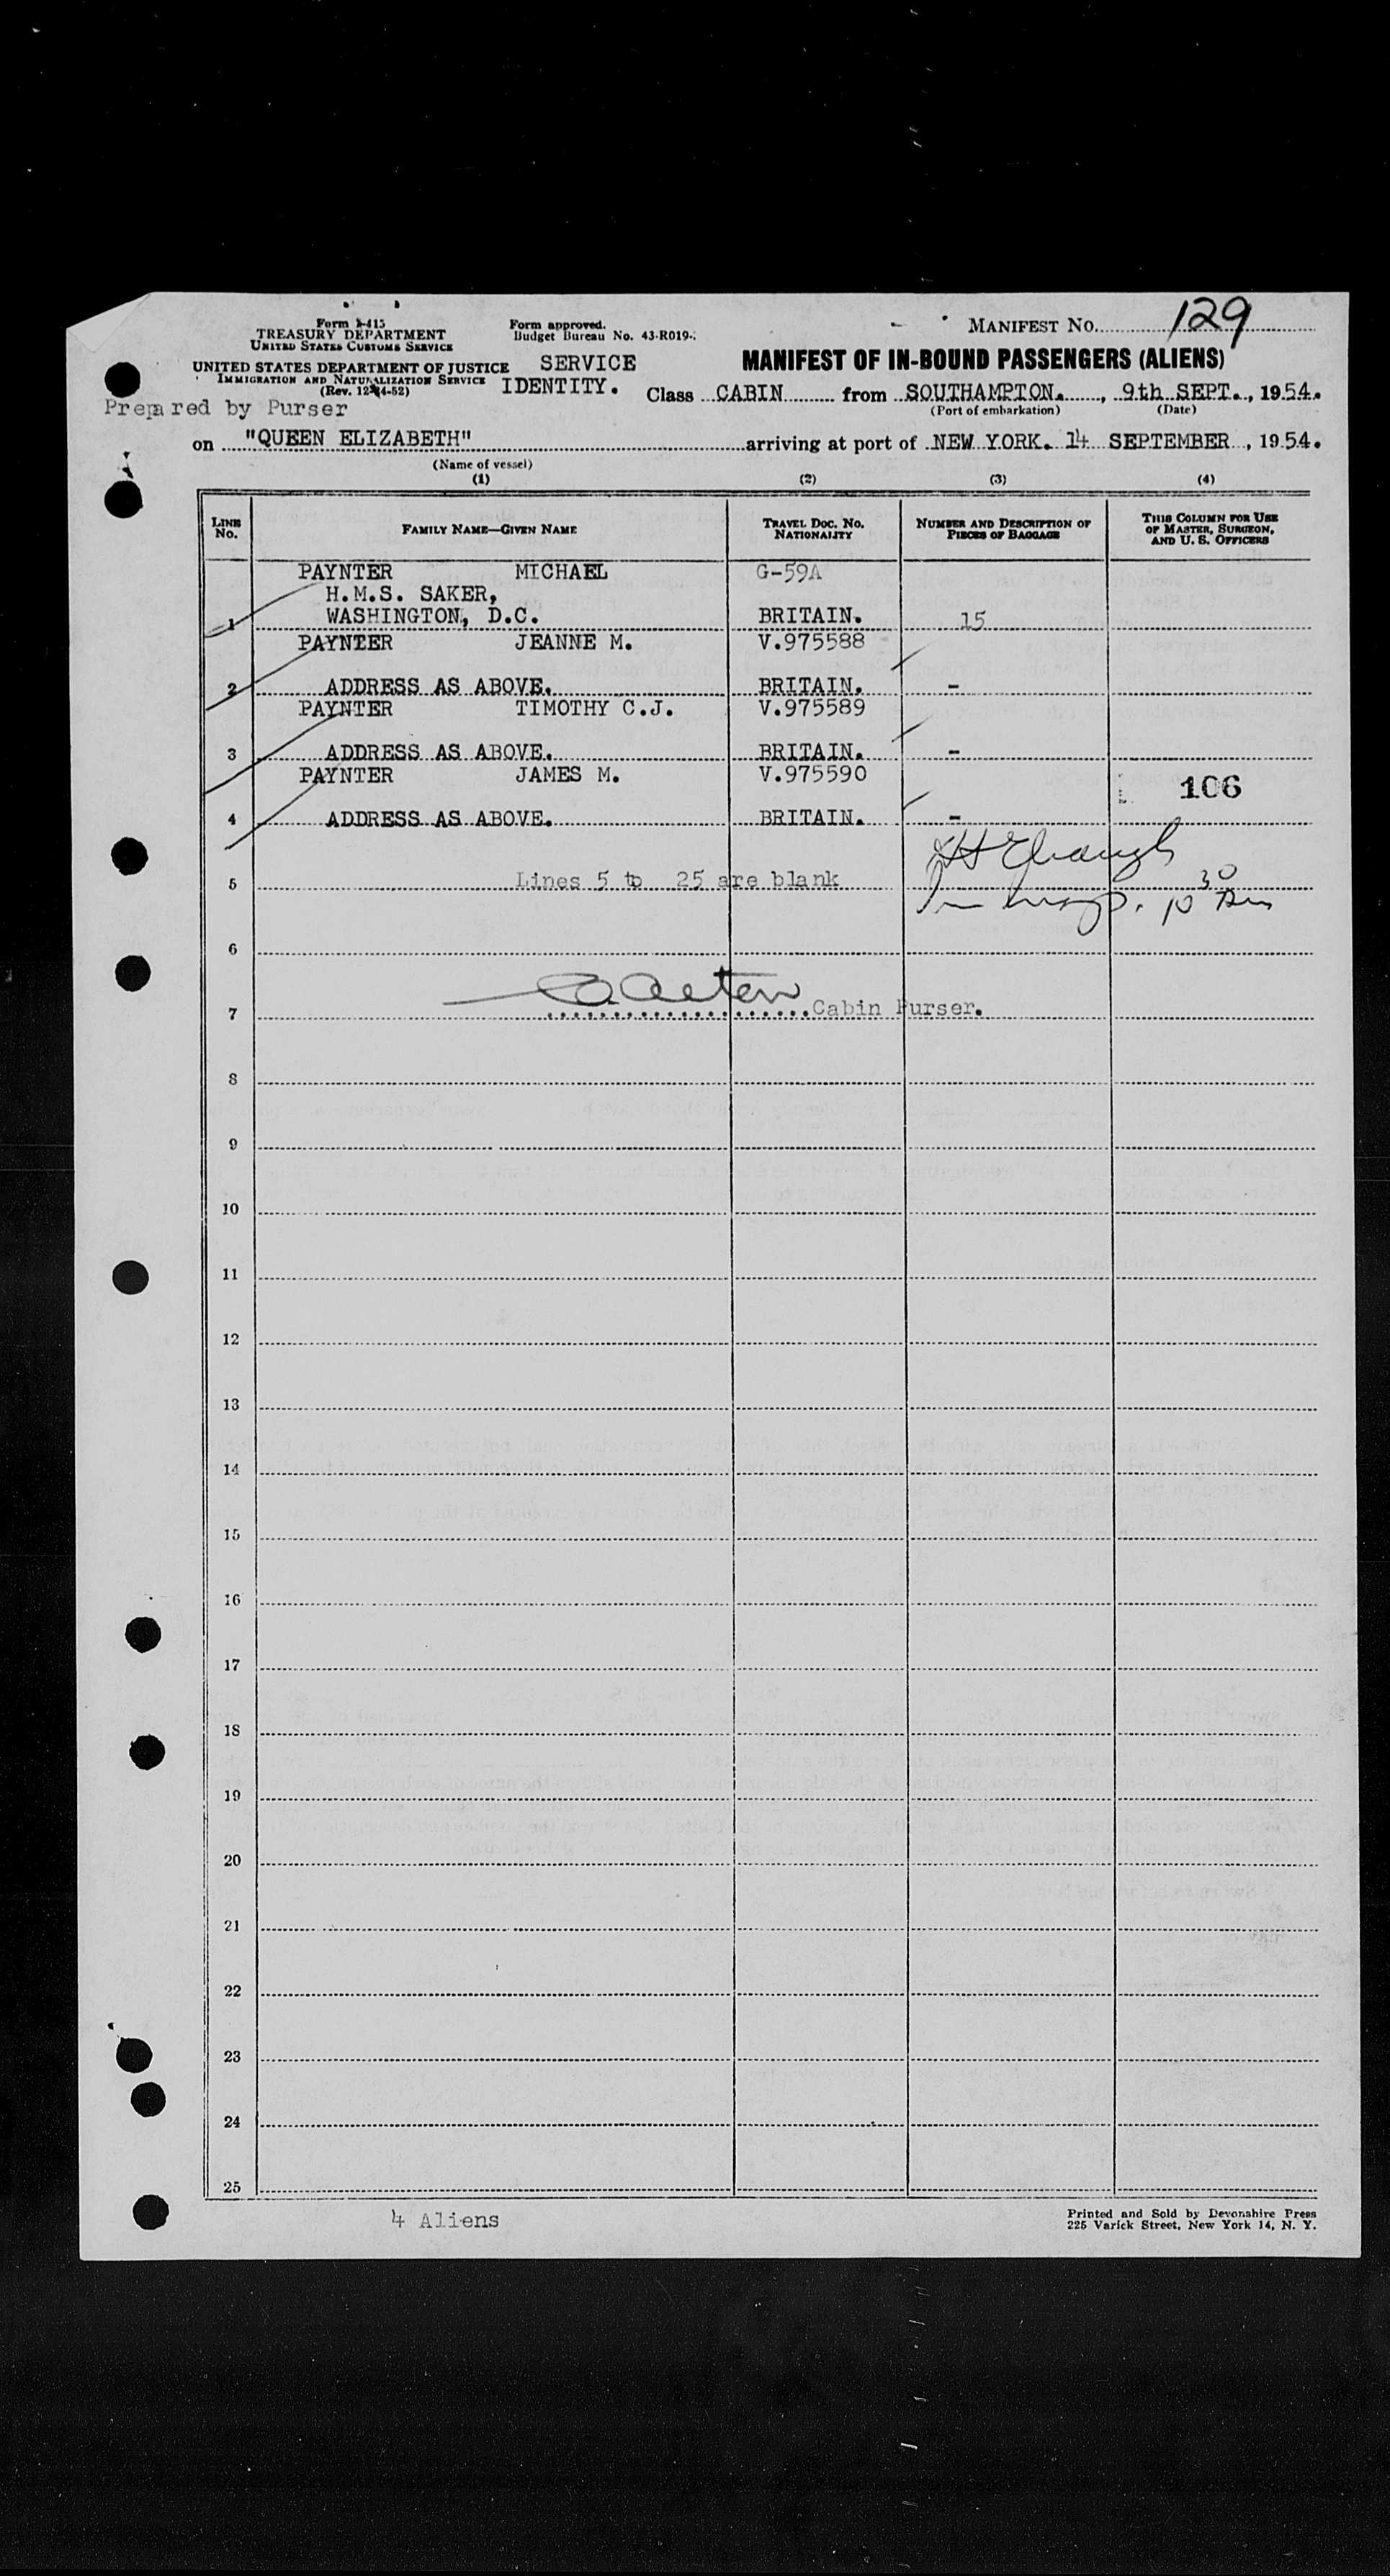 Form I-415
TREASURY DEPARTMENT
UNITED STATES CUSTOMS SERVICE
UNITED STATES DEPARTMENT OF JUSTICE
IMMIGRATION AND NATURALIZATION SERVICE
(Rev. 12-4-52)
Prepared by Purser
Form approved.
Budget Bureau No. 43-R019-
SERVICE
IDENTITY.
MANIFEST NO. 129
MANIFEST OF IN-BOUND PASSENGERS (ALIENS)
Class CABIN from SOUTHAMPTON. , 9th SEPT. , 1954.
(Port of embarkation) (Date)
on "QUEEN ELIZABETH" arriving at port of NEW YORK. 14 SEPTEMBER , 1954.
(Name of vessel)
(1) (2) (3) (4)
LINE No. FAMILY NAME—GIVEN NAME TRAVEL DOC. NO. NATIONALITY NUMBER AND DESCRIPTION OF PIECES OF BAGGAGE THIS COLUMN FOR USE OF MASTER, SURGEON, AND U. S. OFFICERS
PAYNTER MICHAEL G-59A
H.M.S. SAKER,
1 WASHINGTON, D.C. BRITAIN. 15
PAYNTER JEANNE M. V.975588
2 ADDRESS AS ABOVE. BRITAIN. -
PAYNTER TIMOTHY C.J. V.975589
3 ADDRESS AS ABOVE. BRITAIN. -
PAYNTER JAMES M. V.975590
106
4 ADDRESS AS ABOVE. BRITAIN. -
5 Lines 5 to 25 are blank
6
7 Cabin Purser.
8
9
10
11
12
13
14
15
16
17
18
19
20
21
22
23
24
25
4 Aliens
Printed and Sold by Devonshire Press
225 Varick Street, New York 14, N. Y.